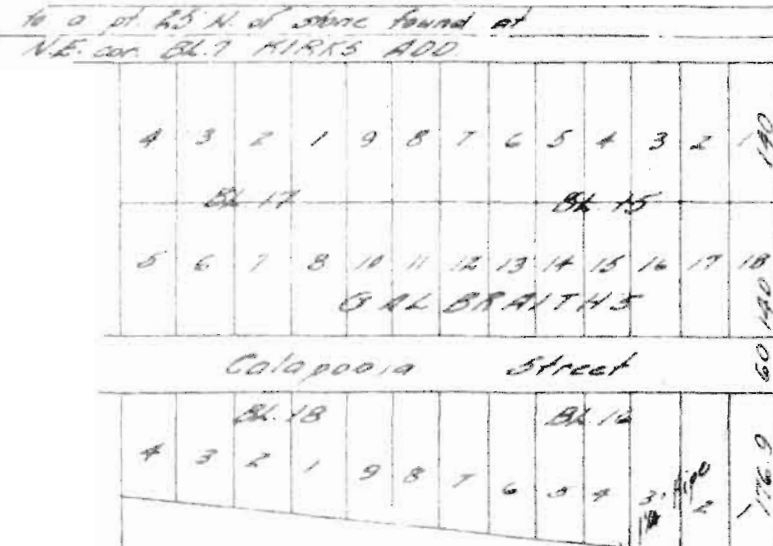 to a pt. 25 N. of stone found at
N.E. cor. BL.7 KIRKS ADD.
4 3 2 1 9 8 7 6 5 4 3 2 1 140
BL 17 BL 15
5 6 7 8 10 11 12 13 14 15 16 17 18
GALBRAITHS 140
Calapooia Street 60
BL. 18 BL. 16
4 3 2 1 9 8 7 6 5 4 3 2 1 176.9